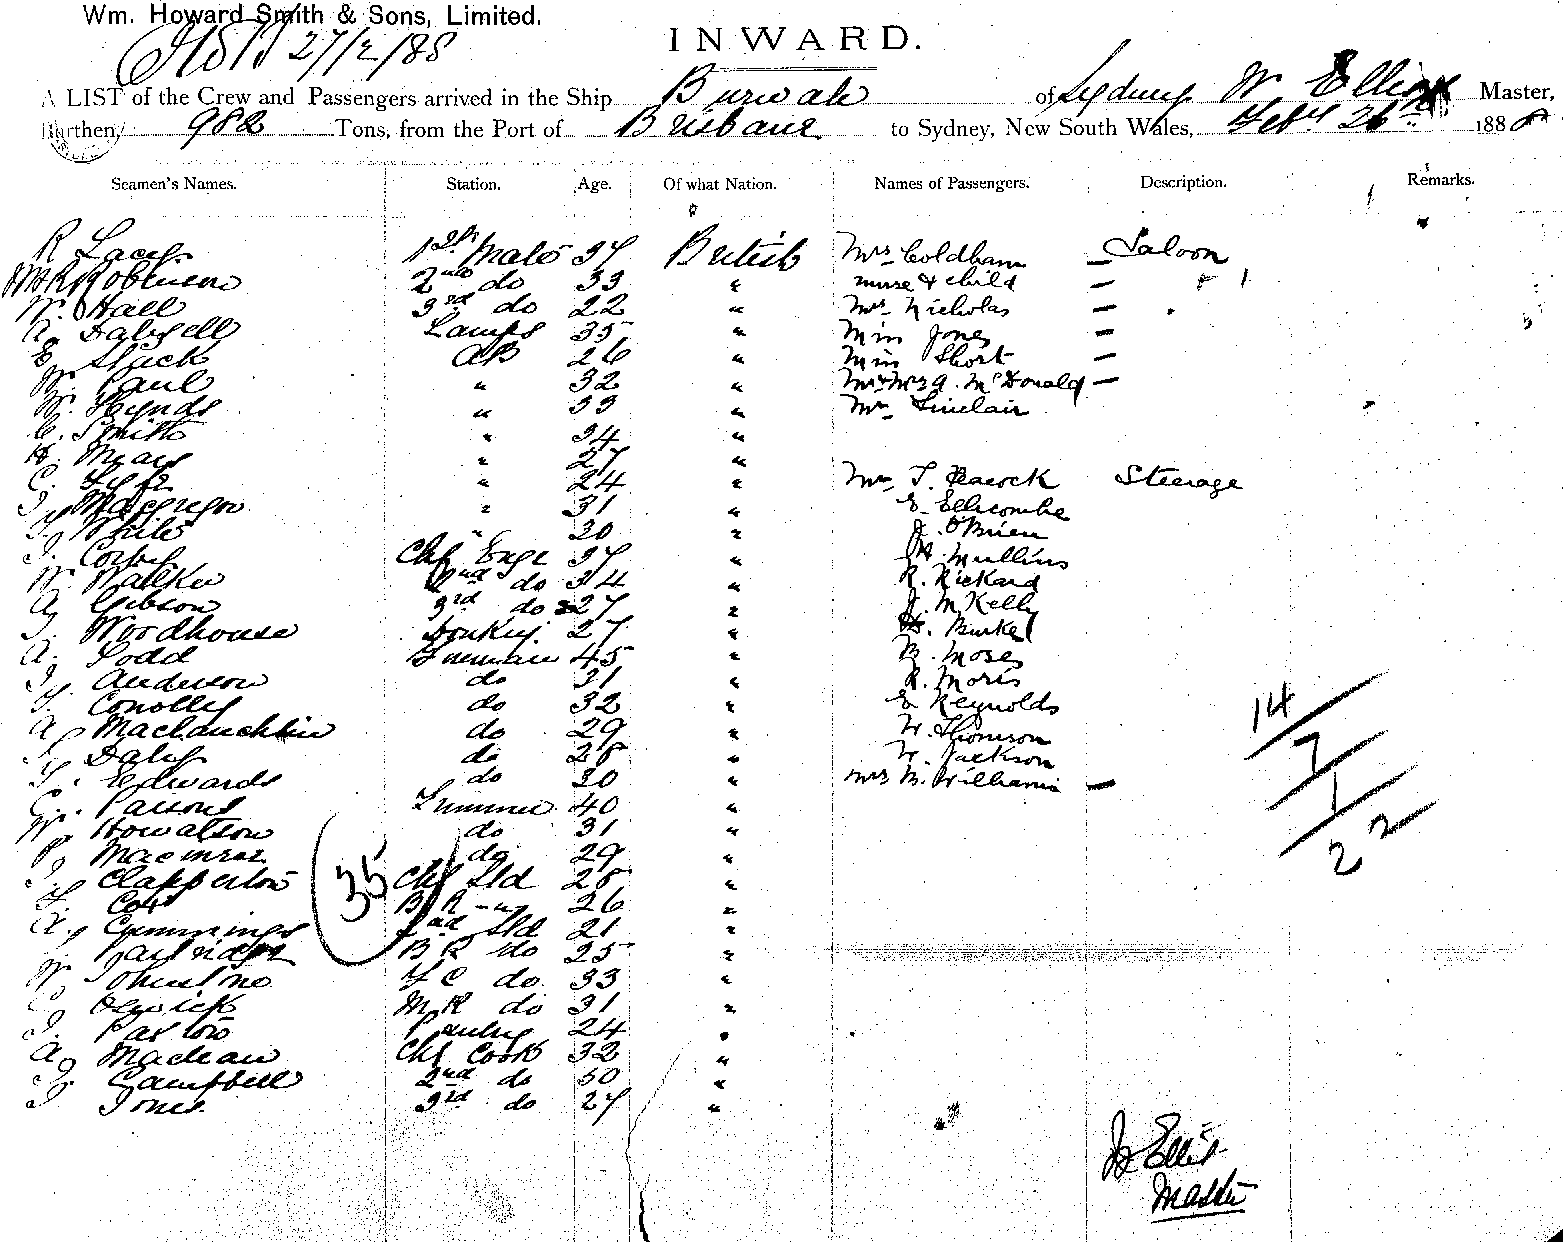 Wm. Howard Smith & Sons, Limited.
27/2/88
INWARD.
A LIST of the Crew and Passengers arrived in the Ship Burwah of Sydney W Ellis Master,
Burthen, 982 Tons, from the Port of Brisbane to Sydney, New South Wales, Feby 26th 1888
Seamen's Names. Station. Age. Of what Nation. Names of Passengers. Description. Remarks.
R Lacey 1st Mate 37 British Mrs Coldham Saloon
Robinson 2nd do 33 " nurse & child —
W. Hall 3rd do 22 " Mr Nicholas —
A. Dalzell Lamps 35 " Miss Jones —
E. Slack AB 26 " Miss Short —
W. Paul " 32 " Mr & Mrs A. McDonald —
W. Hynds " 33 " Mr Sinclair
C. Smith " 34 "
H. Mean " 27 "
C. Fyfe " 24 " Mr T. Peacock Steerage
J. Macgregor " 31 " E. Ellicombe
White " 30 " J. O'Brien
Corby Chf Engr 37 " H. Mullins
W. Walker 2nd do 34 " R. Rickard
A. Gibson 3rd do 27 " J. M Kelly
J. Woodhouse Donkey. 27 " Burke
A. Todd Fireman 45 " B. Moses
J. Anderson do 31 " R. Moris
T. Conolly do 32 " E Reynolds
A. Maclauchlin do 29 " W. Thomson
Daley do 28 " W. Jackson
T. Edwards do 30 " Mrs M. Williams —
C. Parsons Trimmer 40 "
W. Howatson do 31 "
P. Macinrae do 29 "
J. Clapperton Chf Std 28 "
Cox B R " 26 "
A. Cummings 2nd Std 21 "
Partridge B R do 25 "
W. Johnstone F C do 33 "
C. Oswick M R do 31 "
J. Paxton Pantry 24 "
A. Maclean Chf Cook 32 "
Campbell 2nd do 50 "
J. Jones 3rd do 27 "
35
14
7
1
22
Ellis
Master